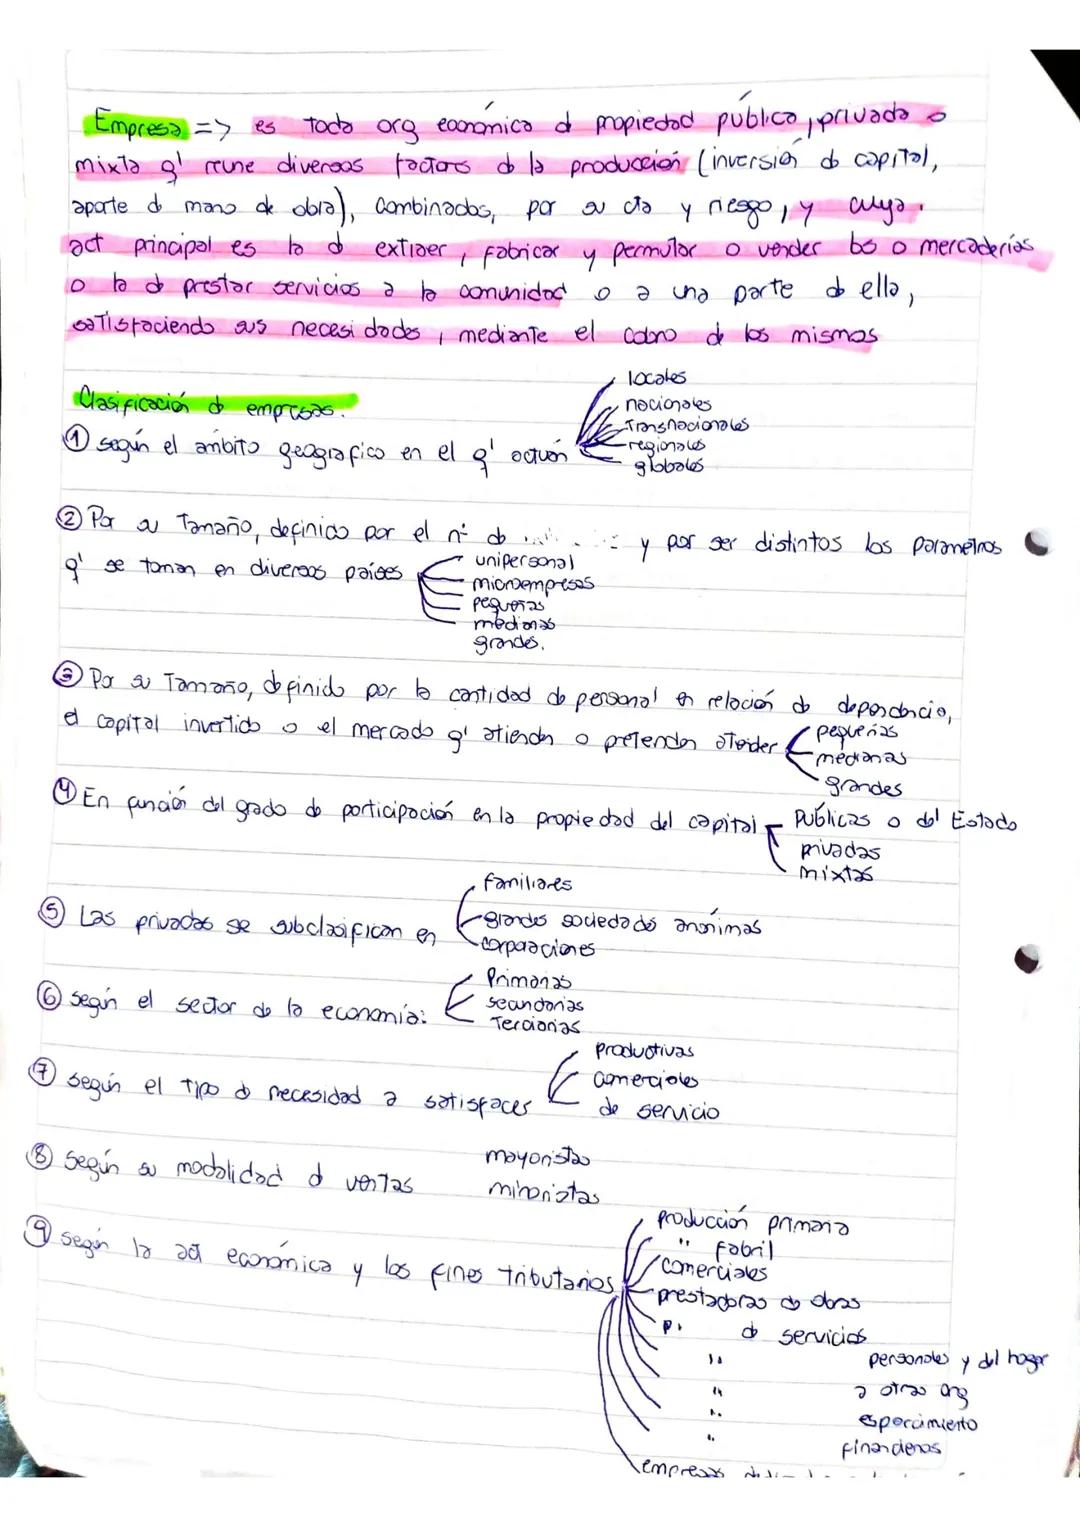 Empresa => es toda org económica d propiedad pública, privada o
mixta q' reune diversos factores d la producción (inversión d capital,
aporte d mano de obra), combinados, por su cta y riesgo, y cuya
act principal es la d extraer, fabricar y permutar o vender bs o mercaderías
o la d prestar servicios a la comunidad o a una parte d ella,
satisfaciendo sus necesidades, mediante el cobro de los mismos
Clasificación d empresas.
① según el ambito geografico en el q' actuán
locales
nacionales
Transnacionales
regionales
globales
② Por su Tamaño, definido por el n° d y por ser distintos los parametros
q' se toman en diversos paises
unipersonal
microempresas
pequeñas
medianas
grandes.
③ Por su Tamaño, definido por la cantidad de personal en relación d dependencia,
el capital invertido o el mercado q' atienden o pretenden atender
pequeñas
medianas
grandes
④ En función del grado de participación en la propiedad del capital
Públicas o del Estado
privadas
mixtas
⑤ Las privadas se subclasifican en
familiares
grandes sociedades anónimas
corporaciones
⑥ según el sector de la economía:
Primarias
secundarias
Terciarias
⑦ según el tipo d necesidad a satisfacer
productivas
comerciales
de servicio
⑧ según su modalidad d ventas
mayoristas
minoristas
⑨ según la act económica y los fines tributarios
producción primaria
" fabril
comerciales
prestadoras de obras
p. d servicios
" personales y del hogar
" a otras org
" esparcimiento
" financieras
empresas